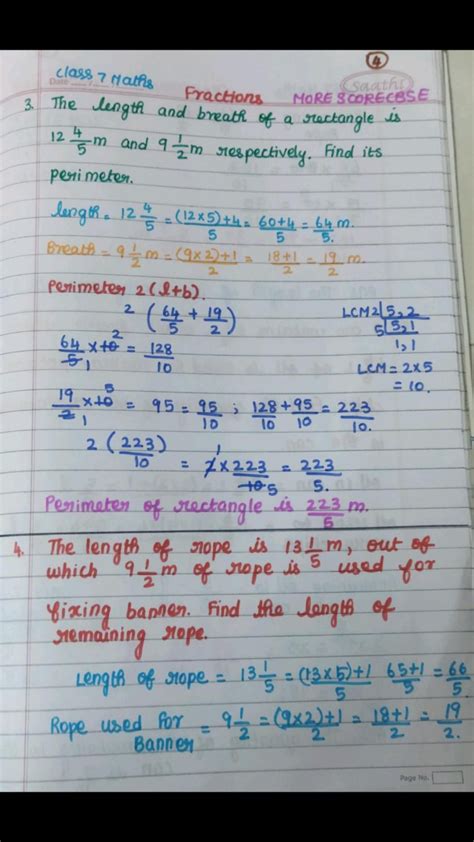 4
Class 7 Maths
Date
saathi
Fractions MORE SCORECBSE
3. The length and breath of a rectangle is
12 4/5 m and 9 1/2 m respectively. Find its
perimeter.
length = 12 4/5 = (12×5)+4/5 = 60+4/5 = 64/5 m.
Breath = 9 1/2 m = (9×2)+1/2 = 18+1/2 = 19/2 m
Perimeter 2(l+b).
2 (64/5 + 19/2)
LCM 2|5,2
5|5,1
1,1
LCM = 2×5
= 10.
64/5 1 ×10 2 = 128/10
19/2 1 ×10 5 = 95 = 95/10 ; 128/10 + 95/10 = 223/10.
2 (223/10) = 2 1 × 223/10 5 = 223/5.
Perimeter of rectangle is 223/5 m.
4. The length of rope is 13 1/5 m, out of
which 9 1/2 m of rope is used for
fixing banner. Find the length of
remaining rope.
Length of rope = 13 1/5 = (13×5)+1/5 65+1/5 = 66/5
Rope used for Banner = 9 1/2 = (9×2)+1/2 = 18+1/2 = 19/2.
Page No.